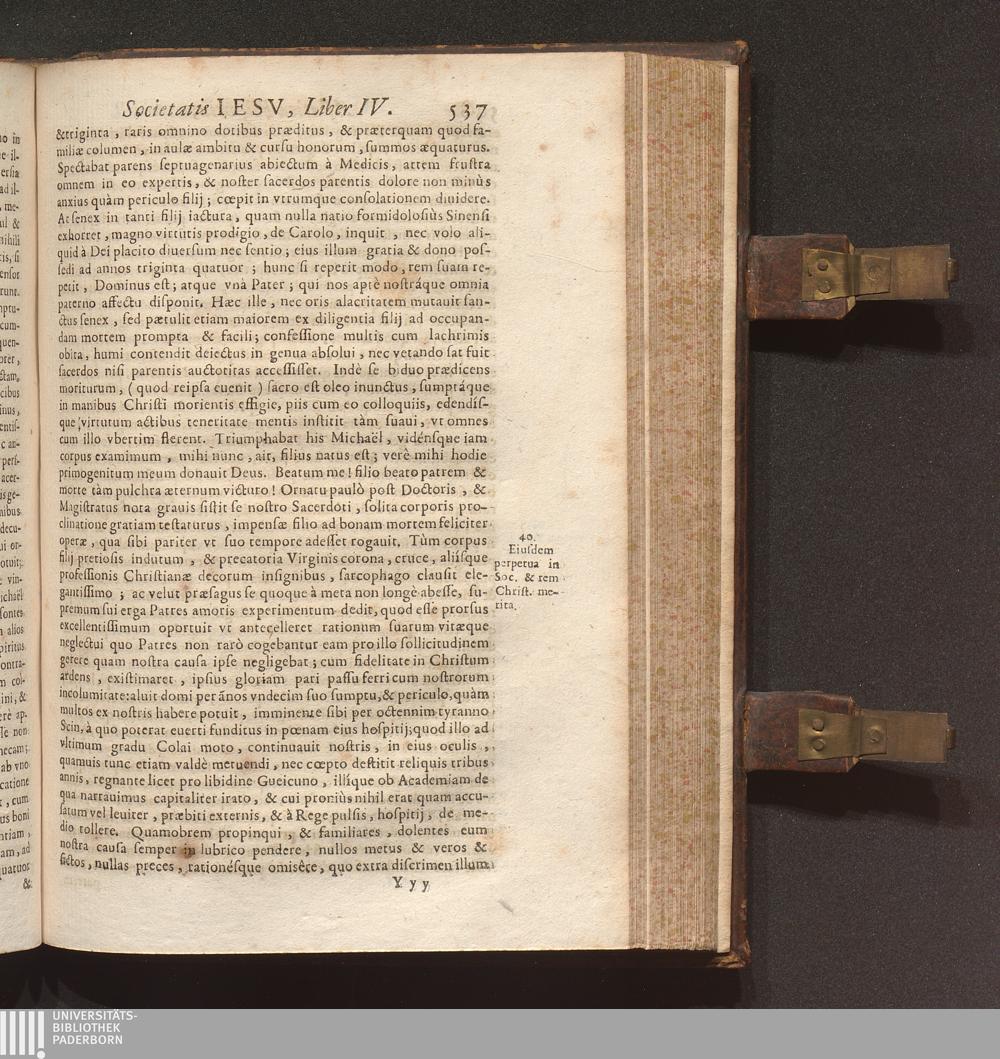 Societatis IESV, Liber IV. 537
&triginta, raris omnino dotibus præditus, & præterquam quod fa-
miliæ columen, in aulæ ambitu & cursu honorum, summos æquaturus.
Spectabat parens septuagenarius abiectum à Medicis, artem frustra
omnem in eo expertis, & noster sacerdos parentis dolore non minùs
anxius quàm periculo filij; cœpit in vtrumque consolationem diuidere.
At senex in tanti filij iactura, quam nulla natio formidolosiùs Sinensi
exhorret, magno virtutis prodigio, de Carolo, inquit, nec volo ali-
quid à Dei placito diuersum nec sentio; eius illum gratia & dono pos-
sedi ad annos triginta quatuor; hunc si reperit modo, rem suam re-
petit, Dominus est; atque vnà Pater; qui nos aptè nostráque omnia
paterno affectu disponit. Hæc ille, nec oris alacritatem mutauit san-
ctus senex, sed pætulit etiam maiorem ex diligentia filij ad occupan-
dam mortem prompta & facili; confessione multis cum lachrimis
obita, humi contendit deiectus in genua absolui, nec vetando sat fuit
sacerdos nisi parentis auctoritas accessisset. Indè se biduo prædicens
moriturum, (quod reipsa euenit) sacro est oleo inunctus, sumptáque
in manibus Christi morientis effigie, piis cum eo colloquiis, edendís-
que virtutum actibus teneritate mentis institit tàm suaui, vt omnes
cum illo vbertim flerent. Triumphabat his Michaël, vidénsque iam
corpus examimum, mihi nunc, ait, filius natus est; verè mihi hodie
primogenitum meum donauit Deus. Beatum me! filio beato patrem &
morte tàm pulchra æternum victuro! Ornatu paulò post Doctoris, &
Magistratus nota grauis sistit se nostro Sacerdoti, solita corporis pro-
clinatione gratiam testaturus, impensæ filio ad bonam mortem feliciter
operæ, qua sibi pariter vt suo tempore adesset rogauit. Tùm corpus
filij pretiosis indutum, & precatoria Virginis corona, cruce, aliísque
professionis Christianæ decorum insignibus, sarcophago clausit ele-
gantissimo; ac velut præsagus se quoque à meta non longè abesse, su-
premum sui erga Patres amoris experimentum dedit, quod esse prorsus
excellentissimum oportuit vt antecelleret rationum suarum vitæque
neglectui quo Patres non rarò cogebantur eam pro illo sollicitudinem
gerere quam nostra causa ipse negligebat; cum fidelitate in Christum
ardens, existimaret, ipsius gloriam pari passu ferri cum nostrorum
incolumitate: aluit domi per ãnos vndecim suo sumptu, & periculo, quàm
multos ex nostris habere potuit, imminente sibi per octennim tyranno
Scin, à quo poterat euerti funditus in pœnam eius hospitij; quod illo ad
vltimum gradu Colai moto, continuauit nostris, in eius oculis,
quamuis tunc etiam valdè metuendi, nec cœpto destitit reliquis tribus
annis, regnante licet pro libidine Gueicuno, illíque ob Academiam de
qua narrauimus capitaliter irato, & cui proniùs nihil erat quam accu-
satum vel leuiter, præbiti externis, & à Rege pulsis, hospitij, de me-
dio tollere. Quamobrem propinqui, & familiares, dolentes eum
nostra causa semper in lubrico pendere, nullos metus & veros &
fictos, nullas preces, rationésque omisêre, quo extra discrimen illum
Y y y
40.
Eiusdem
perpetua in
Soc. & rem
Christ. me-
rita.
UNIVERSITÄTS-
BIBLIOTHEK
PADERBORN